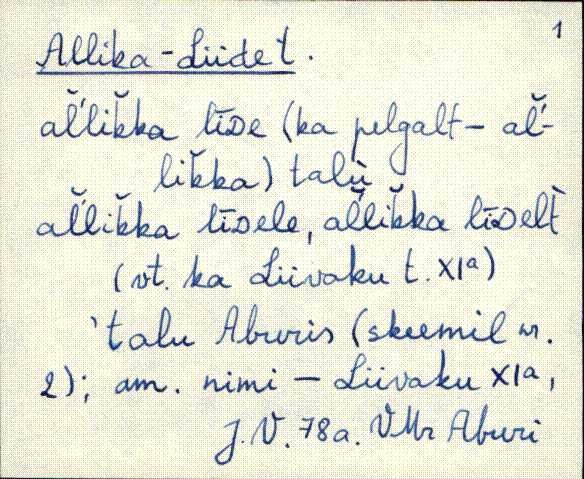 1
Allika-Liide t.
al̆'lik̆ka līᴅe (ka pelgalt – al̆'-
lik̆ka) talù
al̆'lik̆ka līᴅele, al̆'lik̆ka līᴅelt̀
(vt. ka Liivaku t. XIª)
'talu Aburis (skeemil nr.
2); am. nimi – Liivaku XIª,
J.V. 78a. VMr Aburi